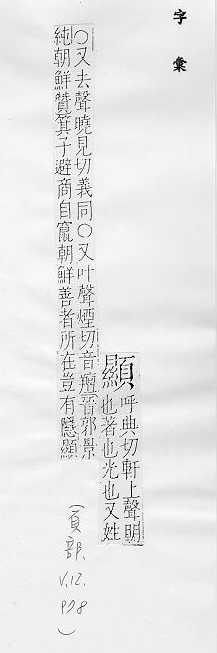 字彙
顯
呼典切軒上聲明
也著也光也又姓
○又去聲曉見切義同○又叶聲煙切音羶晉郭景
純朝鮮贊箕子避商自竄朝鮮善者所在豈有隱顯
(頁部.
V.12.
P78
)